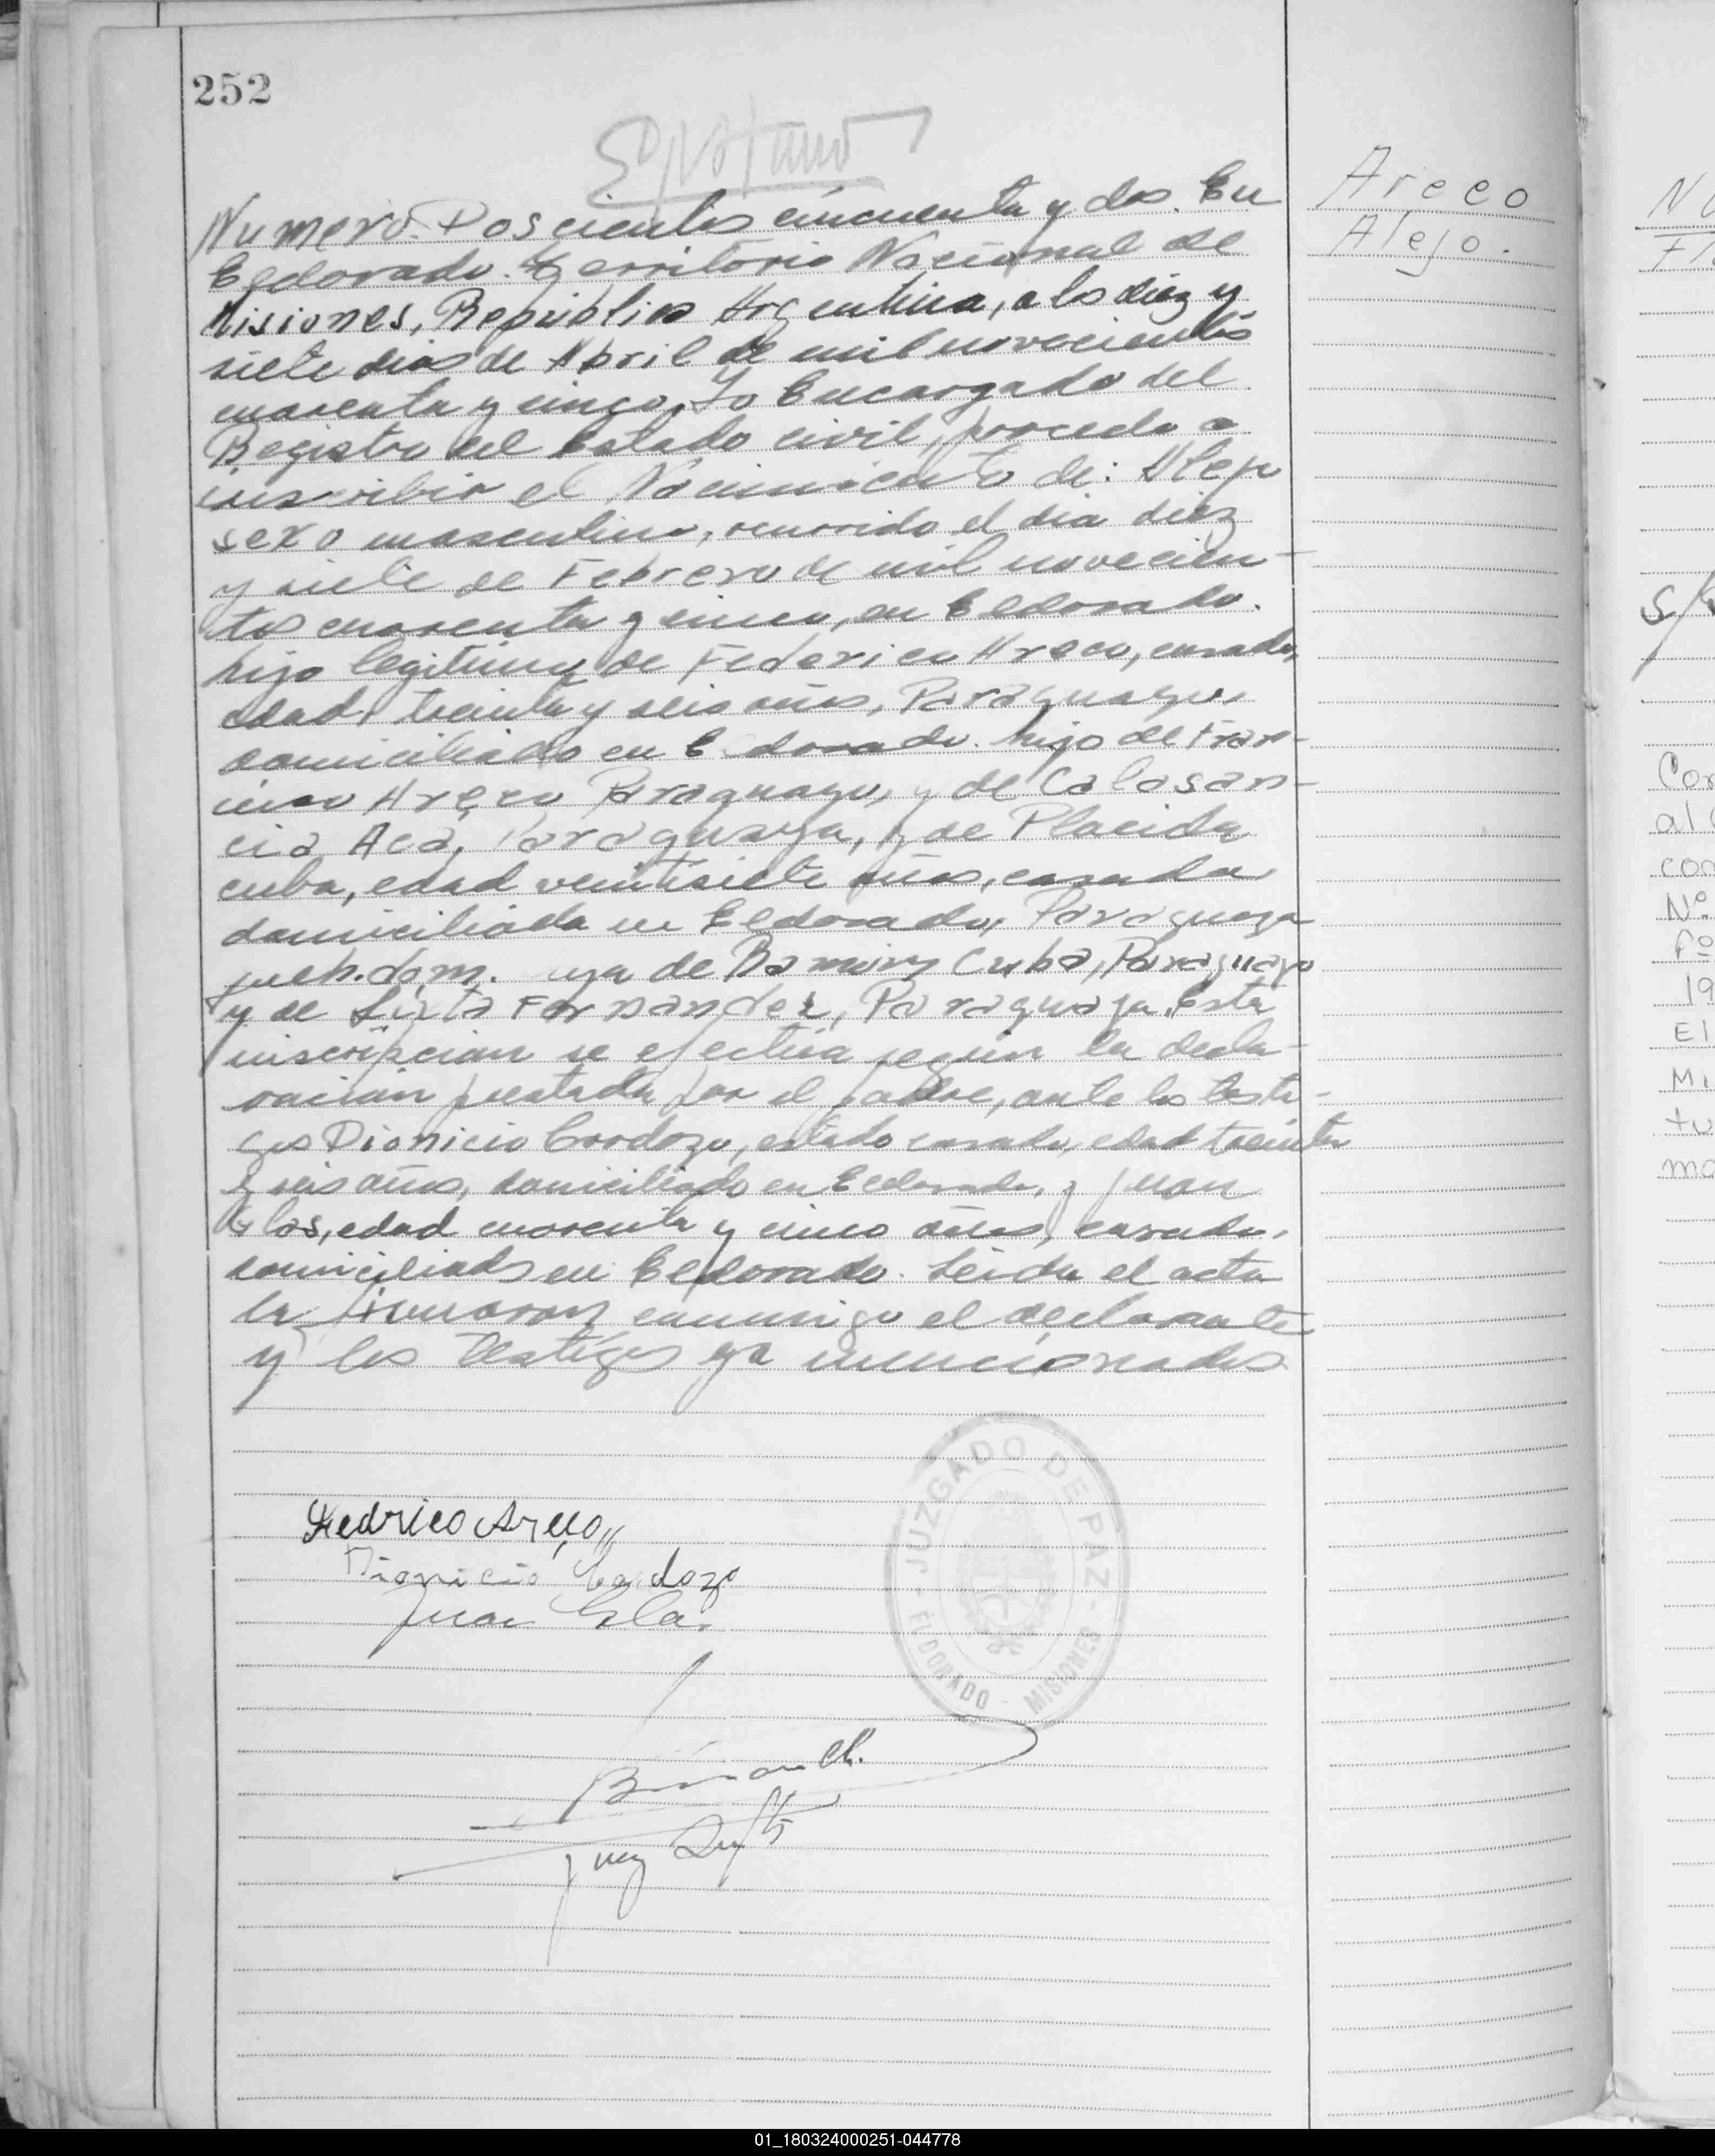 252
Areco
Alejo.
Numero. Doscientos cincuenta y dos. En
Eldorado. Territorio Nacional de
Misiones, República Argentina, a los diez y
siete dias de Abril de mil novecientos
cuarenta y cinco, Yo Encargado del
Registro del Estado civil, procedo a
inscribir el Nacimiento de: Alejo
sexo masculino, ocurrido el dia diez
y siete de Febrero de mil novecien-
tos cuarenta y cinco, en Eldorado.
hijo legitimo de Federico Areco, casado,
edad treinta y seis años, Paraguayo,
domiciliado en Eldorado. hijo de Fran-
cisco Areco Paraguayo, y de Calasan-
cia Aca, Paraguaya, y de Placida
cuba, edad veintisiete años, casada
domiciliada en Eldorado, Paraguaya
de Ramon Cuba, Paraguayo
y de Sixta Fernandez, Paraguaya. Esta
inscripcion se efectúa según la decla-
racion prestada por el padre, ante los testi-
gos Dionicio Cardozo, estado casado, edad treinta
y seis años, domiciliado en Eldorado, y Juan
edad cuarenta y cinco años, casado,
domiciliado en Eldorado. Leida el acta
la firmaron conmigo el declarante
y los testigos ya mencionados
Fedrico Areco
Dionicio Cardozo
Juan
JUZGADO DE PAZ
ELDORADO - MISIONES
Juez
01_180324000251-044778